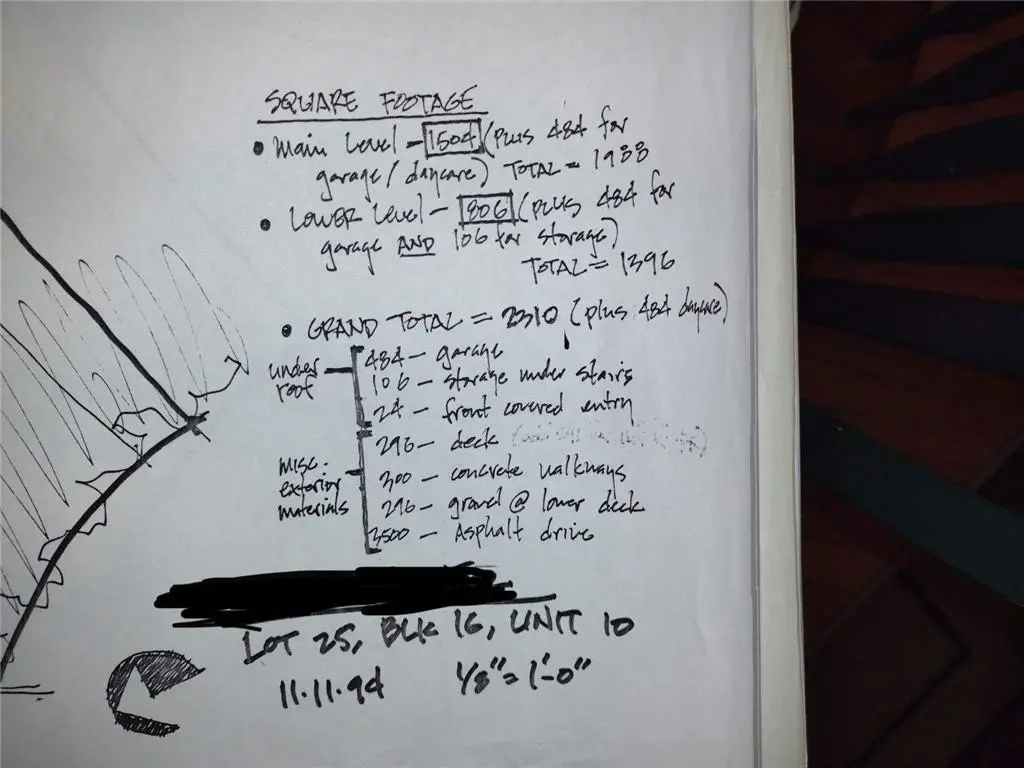 SQUARE FOOTAGE
• Main Level – 1504 (plus 484 for
garage/daycare) TOTAL = 1988
• LOWER Level – 806 (plus 484 for
garage AND 106 for storage)
TOTAL = 1396
• GRAND TOTAL = 2310 (plus 484 daycare)
under roof
484 – garage
106 – storage under stairs
24 – front covered entry
misc. exterior materials
296 – deck
300 – concrete walkways
296 – gravel @ lower deck
3500 – Asphalt drive
LOT 25, BLK 16, UNIT 10
11.11.94 1/8" = 1'-0"